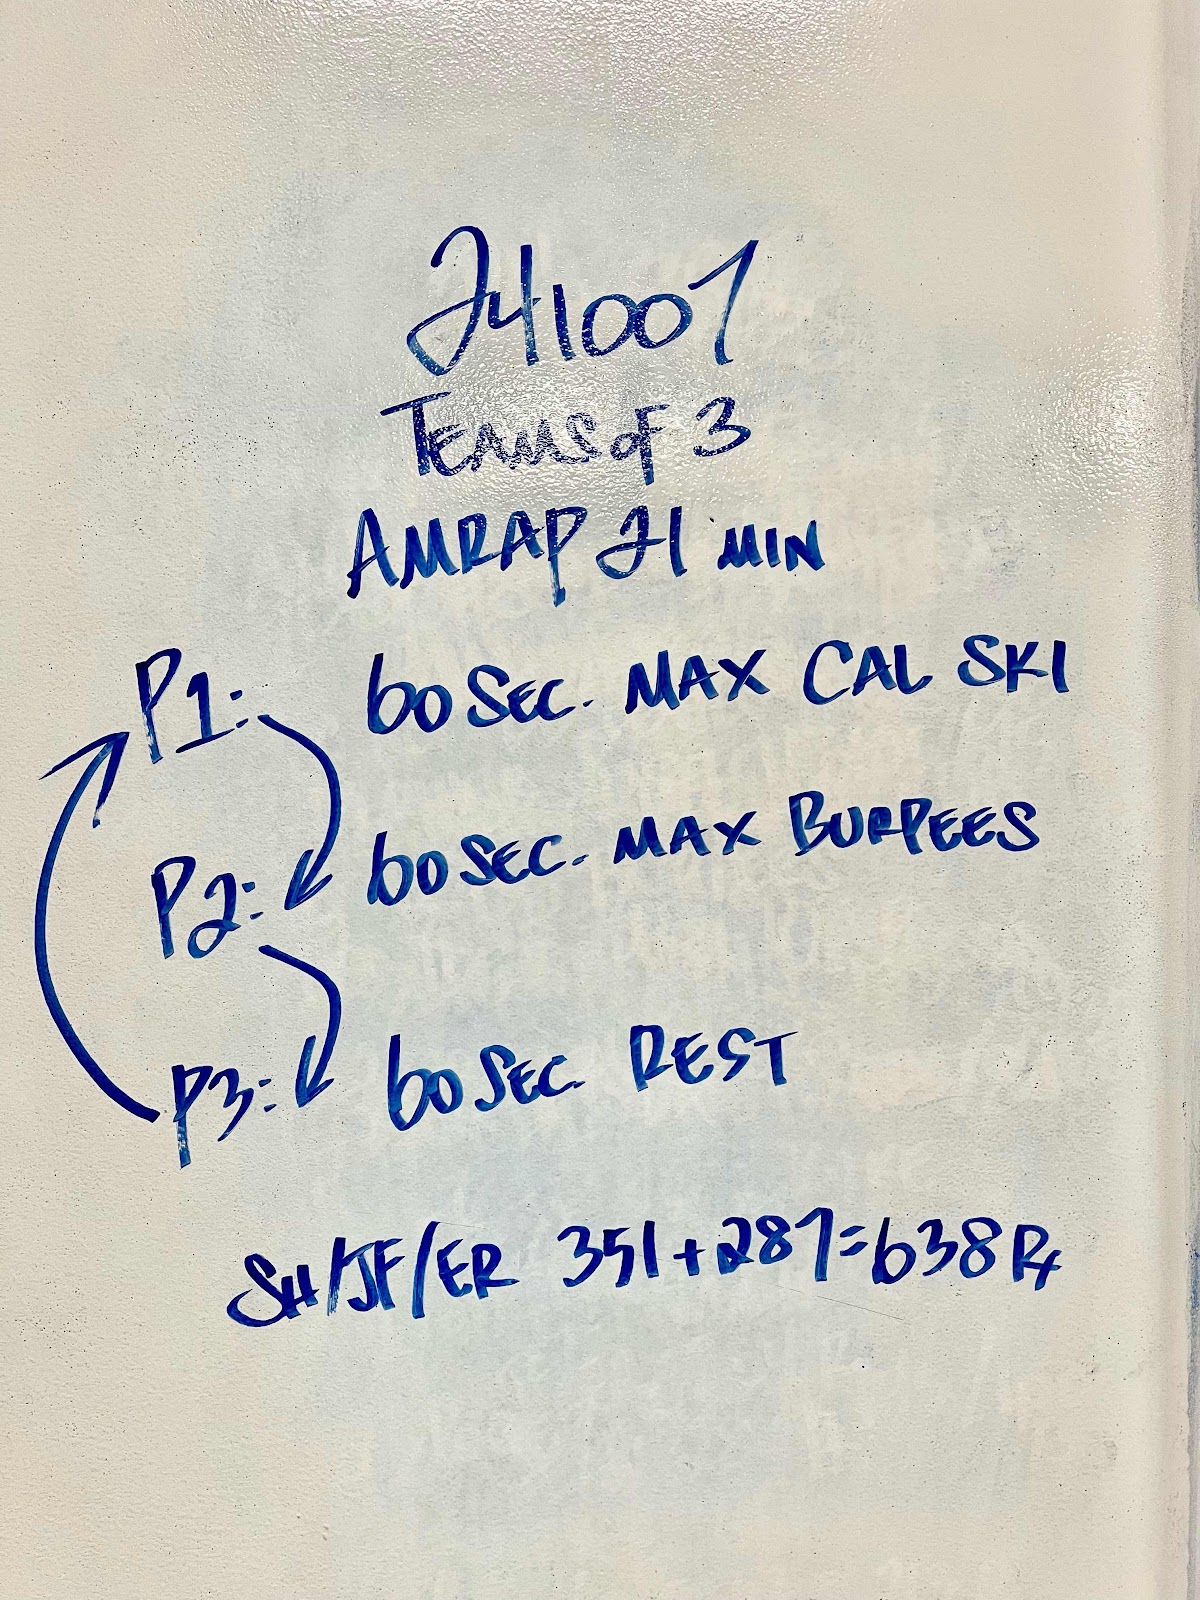 241007
TEAMS OF 3
AMRAP 21 MIN
P1: 60 SEC. MAX CAL SKI
P2: 60 SEC. MAX BURPEES
P3: 60 SEC. REST
SH/JF/ER 351+287=638 Rx